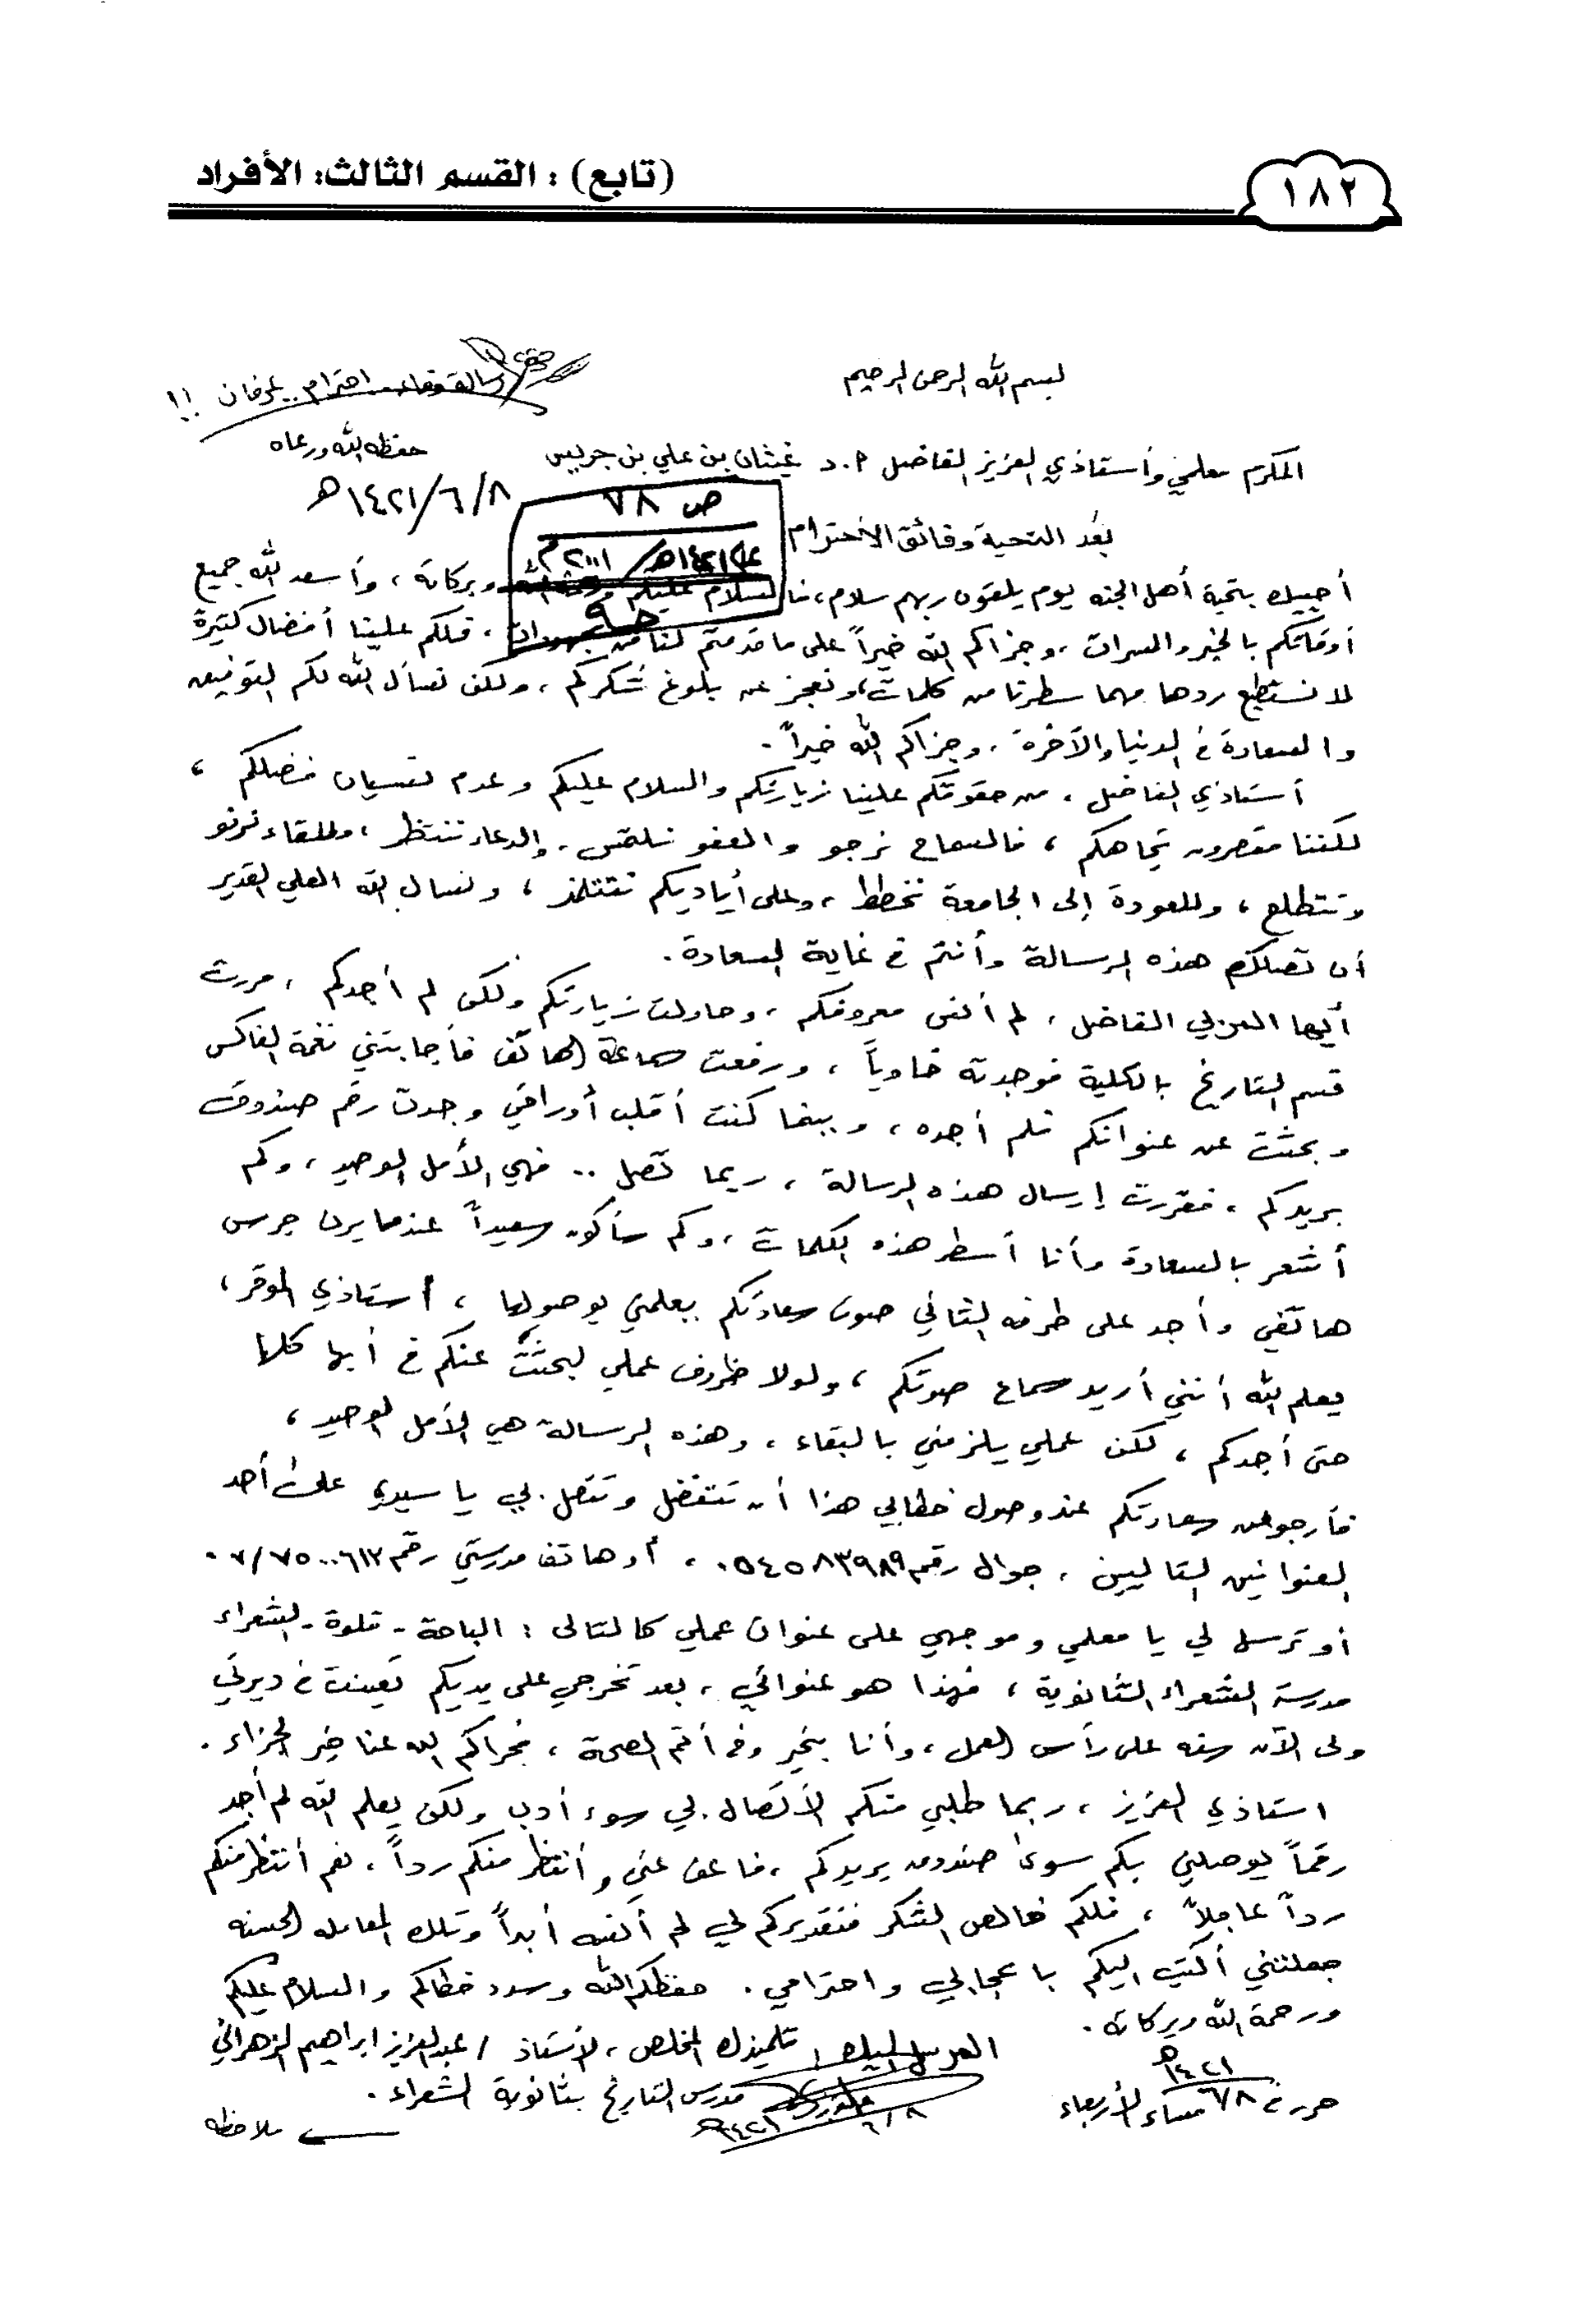 ١٨٢
(تابع) : القسم الثالث: الأفراد
بسم الله الرحمن الرحيم
رسالة وفاء.. احترام.. عرفان !!
المكرم معلمي وأستاذي العزيز الفاضل أ.د غيثان بن علي بن جريس
حفظه الله ورعاه
١٤٢١/٦/٨هـ
ص ٧٨
١٤٢١هـ / ٢٠٠١م
بعد التحية وفائق الاحترام
أحييك بتحية أهل الجنه يوم يلقون ربهم سلام، فالسلام عليكم ورحمة الله وبركاته، وأسعد الله جميع
أوقاتكم بالخير والمسرات، وجزاكم الله خيراً على ما قدمتم لنا من مجهودات، فلكم علينا أفضال كثيرة
لا نستطيع ردها مهما سطرنا من كلمات، ونعجز عن بلوغ شكركم، ولكن نسأل الله لكم التوفيق
والسعادة في الدنيا والآخرة، وجزاكم الله خيراً.
أستاذي الفاضل، من حقوقكم علينا زيارتكم والسلام عليكم وعدم نسيان فضلكم،
لكننا مقصرون تجاهكم، فالسماح نرجو والعفو نلتمس، والدعاء ننتظر، وللقاء نرنو
ونتطلع، وللعودة إلى الجامعة نخطط، وعلى أياديكم نتتلمذ، ونسال الله العلي القدير
أن تصلكم هذه الرسالة وأنتم في غاية السعادة.
أيها المربي الفاضل، لم أنس معروفكم، وحاولت زيارتكم ولكن لم أجدكم، مررت
قسم التاريخ بالكلية فوجدته خاوياً، ورفعت سماعة الهاتف فأجابتني نغمة الفاكس
وبحثت عن عنوانكم فلم أجده، وبينما كنت أقلب أوراقي وجدت رقم صندوق
بريدكم، فقررت إرسال هذه الرسالة، ربما تصل .. فهي الأمل الوحيد، وكم
أشعر بالسعادة وأنا أسطر هذه الكلمات، وكم سأكون سعيداً عندما يرن جرس
هاتفي وأجد على طرفه الثاني صوت سعادتكم يعلمني بوصولها، أستاذي الموقر،
يعلم الله أنني أريد سماع صوتكم، ولولا ظروف عملي لبحثت عنكم في أبها كلها
حتى أجدكم، لكن عملي يلزمني بالبقاء، وهذه الرسالة هي الأمل الوحيد،
فأرجو من سعادتكم عند وصول خطابي هذا أن تتفضل وتتصل بي يا سيدي على أحد
العنوانين التاليين، جوال رقم ٠٥٤٥٨٣٩٨٩، أو هاتف مدرستي رقم ٠٧/٧٥٠٠٦١٢
أو ترسل لي يا معلمي وموجهي على عنوان عملي كالتالى : الباحة - قلوة - الشعراء
مدرسة الشعراء الثانوية، فهذا هو عنواني، بعد تخرجي على يديكم تعينت في ديرتي
ولى الآن سنه على رأس العمل، وأنا بخير وفي أتم الصحة، فجزاكم الله عنا خير الجزاء.
استاذي العزيز، ربما طلبي منكم الأتصال بي سوء أدب ولكن يعلم الله لم أجد
رقماً يوصلني بكم سوى صندوق بريدكم، فاعف عني وأنتظر منكم رداً، نعم أنتظر منكم
رداً عاجلاً، فلكم خالص الشكر فتقديركم لي لم ألقيه أبداً وتلك المعامله الحسنه
جعلتني أكتب اليكم باعجابي واحترامي. حفظكم الله وسدد خطاكم والسلام عليكم
ورحمة الله وبركاته.
المرسل إليك / تلميذك المخلص، الأستاذ / عبدالعزيز ابراهيم الزهراني
مدرس التاريخ بثانوية الشعراء.
٦/٨ ١٤٢١هـ
حررت في ٦/٨ ١٤٢١هـ مساء الأربعاء
ملاحظه